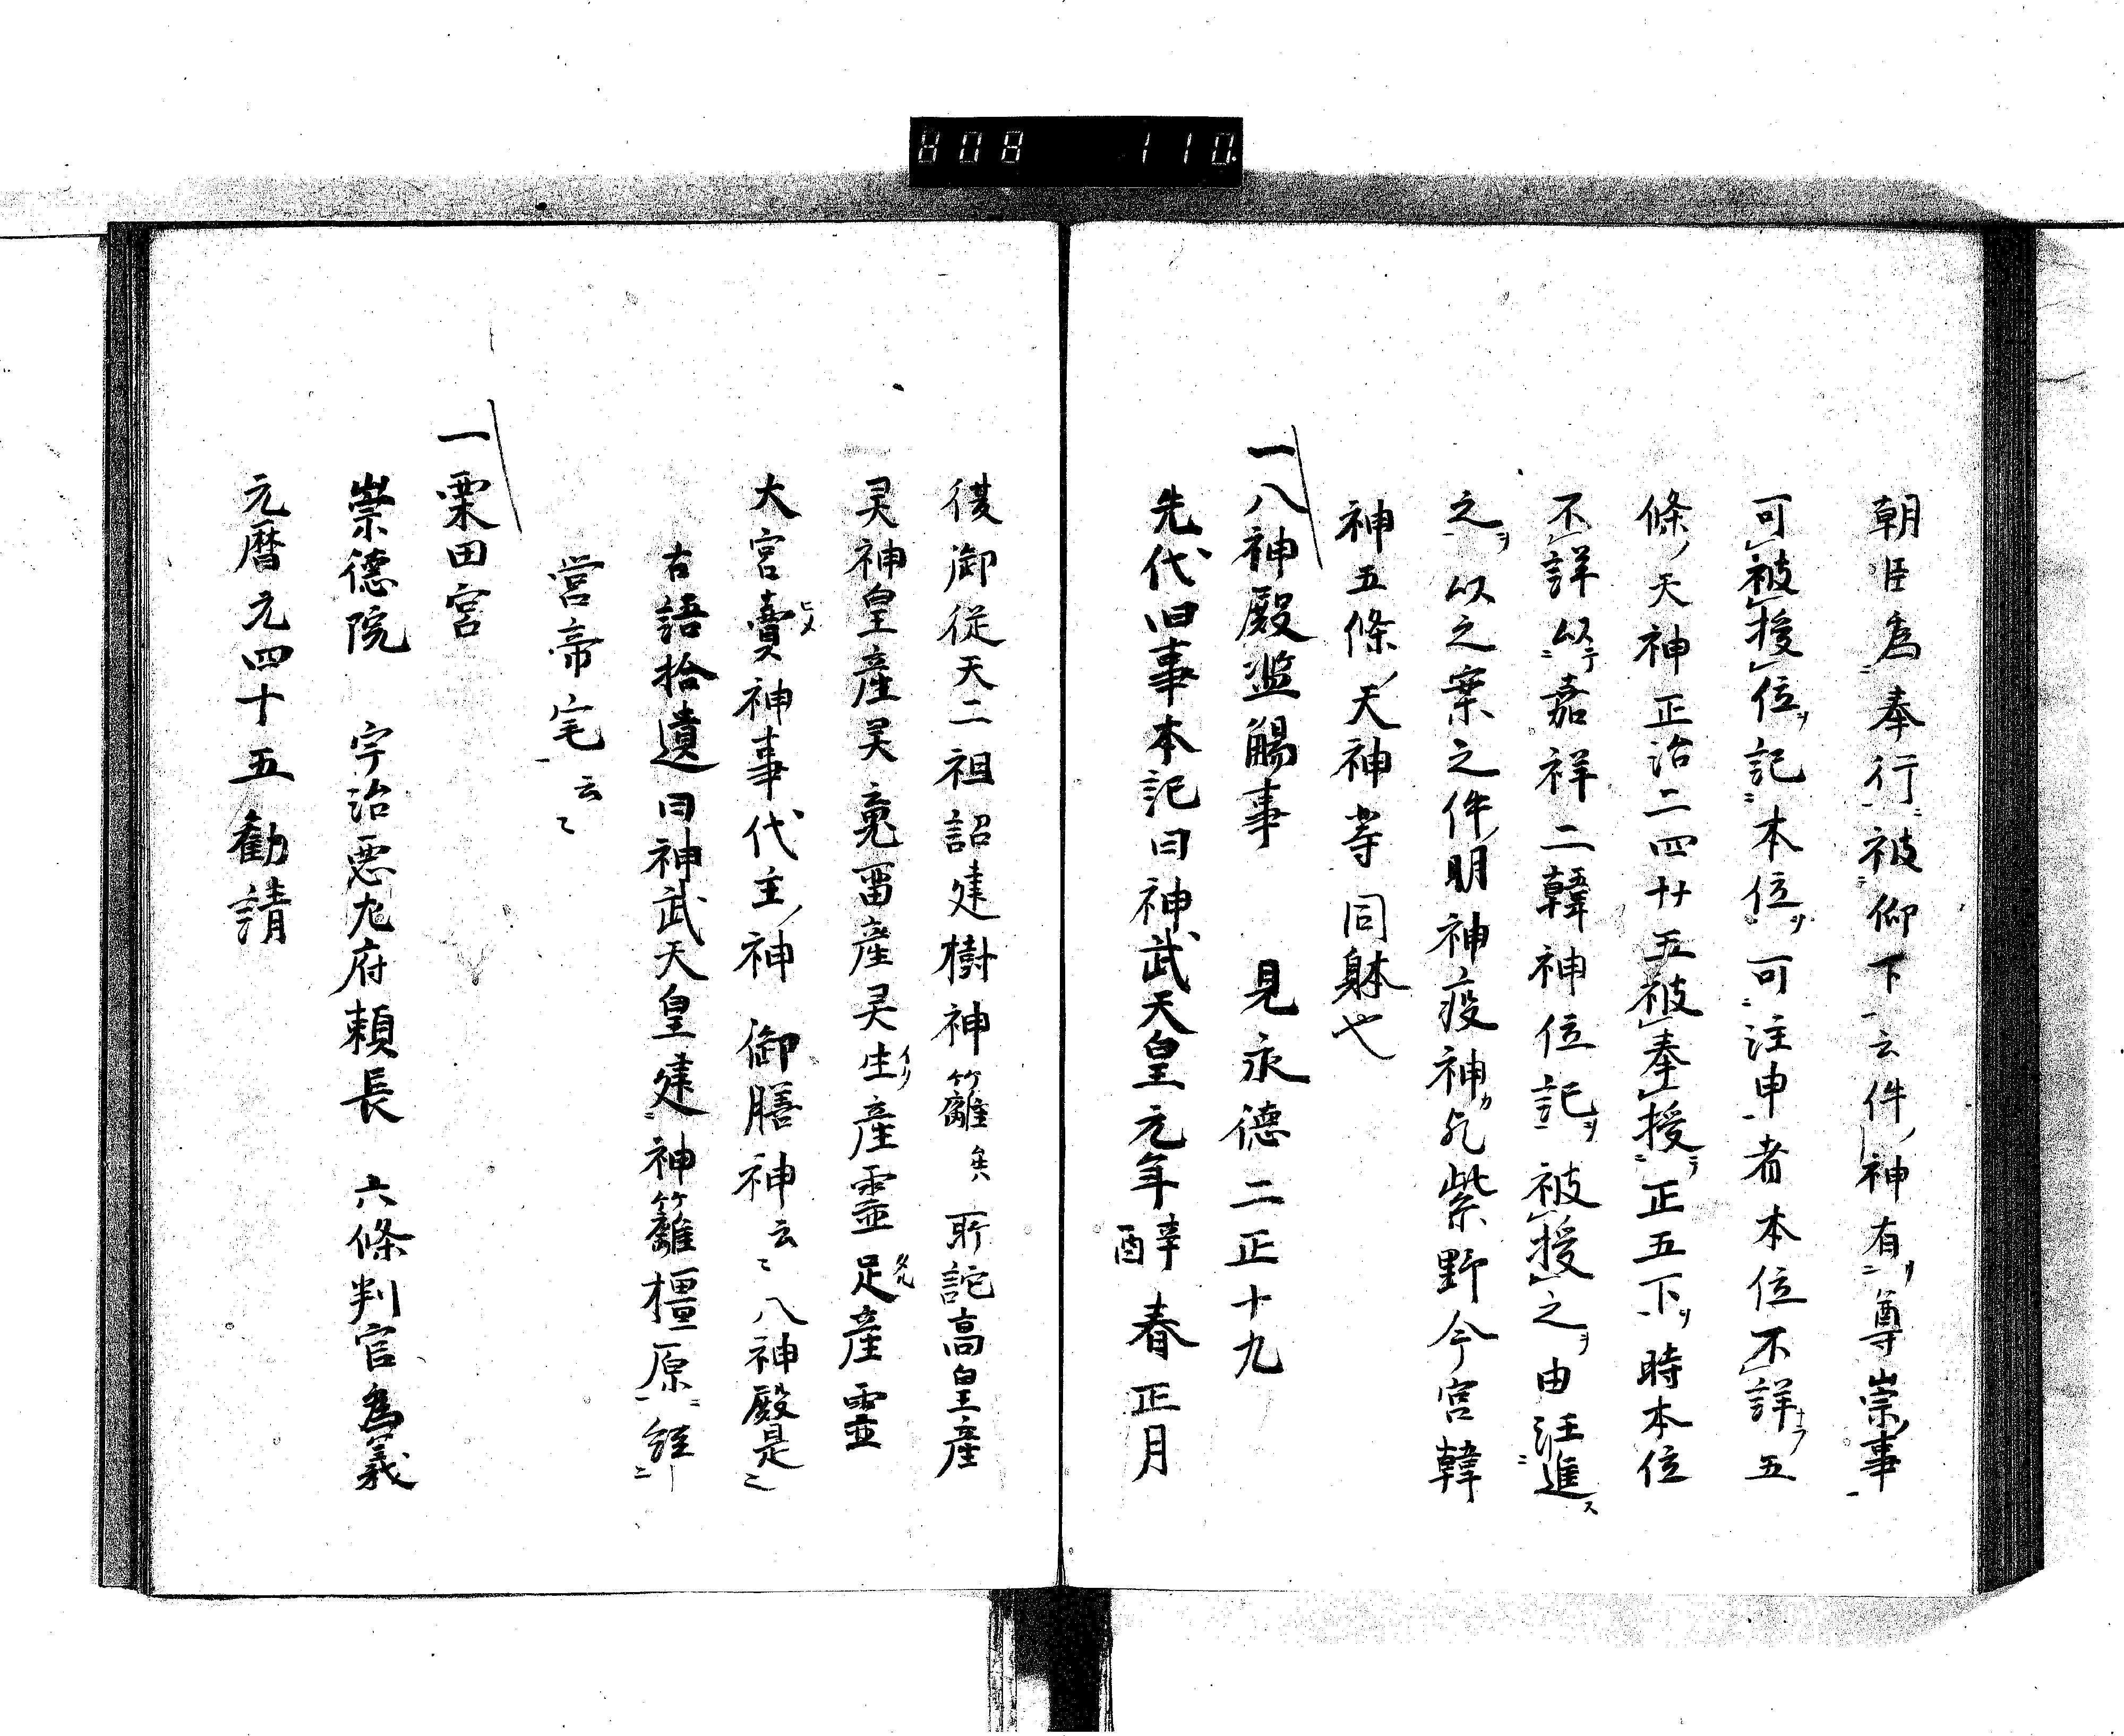 808 110.
朝臣為奉行被仰下云件神有尊崇事
可被授位記本位可注申者本位不詳五
條天神正治二四廿五被奉授正五下時本位
不詳以嘉祥二韓神位記被授之由注進
之以之案之件明神疫神也紫野今宮韓
神五條天神等同躰也
一八神殿濫觴事 見永德二正十九
先代旧事本記曰神武天皇元年辛酉春正月
復御従天二祖詔建樹神籬矣所詑高皇産
灵神皇産灵竟畄産灵生産霊足産霊
大宮賣神事代主神御膳神云〻八神殿是〻
古語拾遺曰神武天皇建神籬橿原経
営帝宅云〻
一粟田宮
崇德院 宇治悪左府頼長 六條判官為義
元暦元四十五勸請